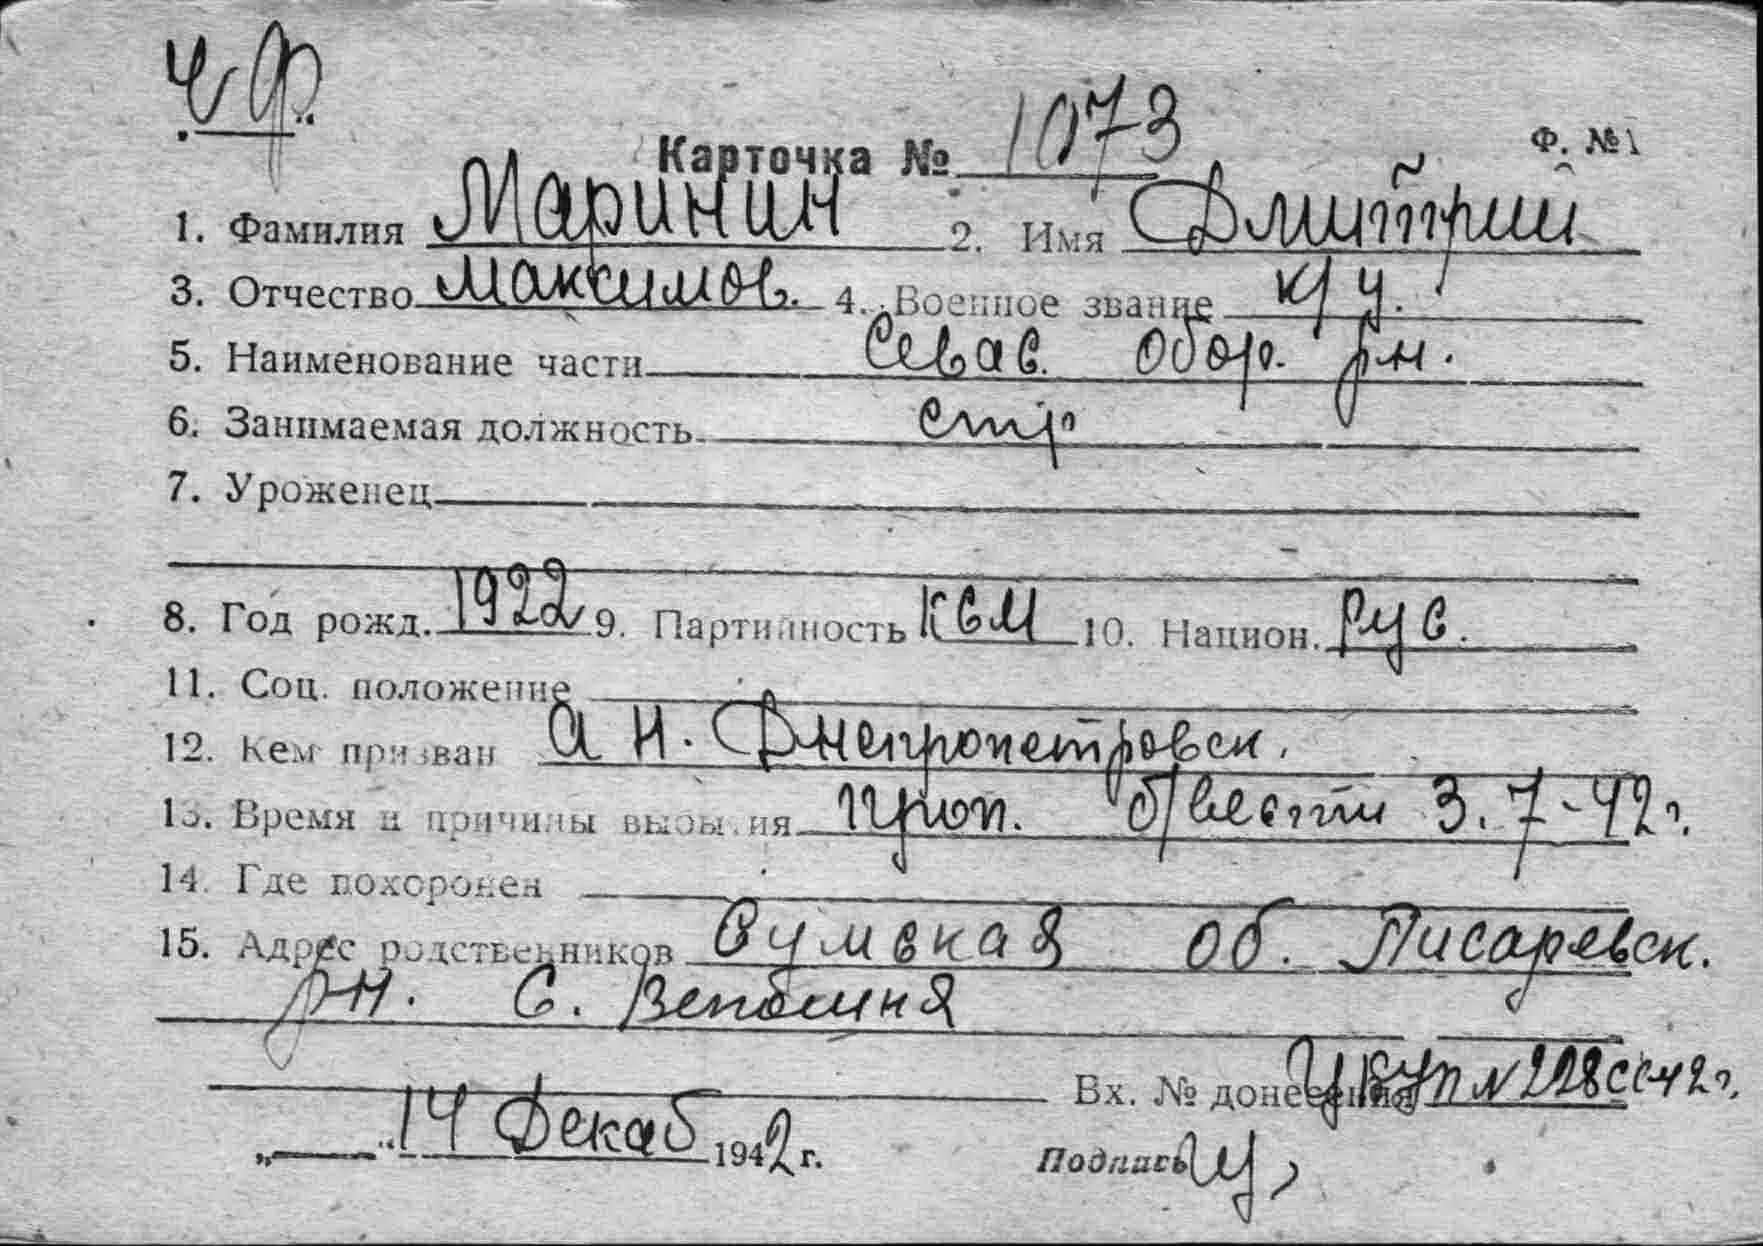 Ч.Ф.
Карточка № 1073 Ф. №1
1. Фамилия Маринин 2. Имя Дмитрий
3. Отчество Максимов. 4. Военное звание к/у.
5. Наименование части Севас. обор. рн.
6. Занимаемая должность стр
7. Уроженец
8. Год рожд. 1922 9. Партийность КСМ 10. Национ. рус.
11. Соц. положение
12. Кем призван а Н. Днепропетровск.
13. Время и причины выбытия проп. б/вести 3.7-42г.
14. Где похоронен
15. Адрес родственников Сумская об. Писаревск.
рн. с.
Вх. № донесения № 228сс42г.
„ “ 14 Декаб 1942 г. Подпись